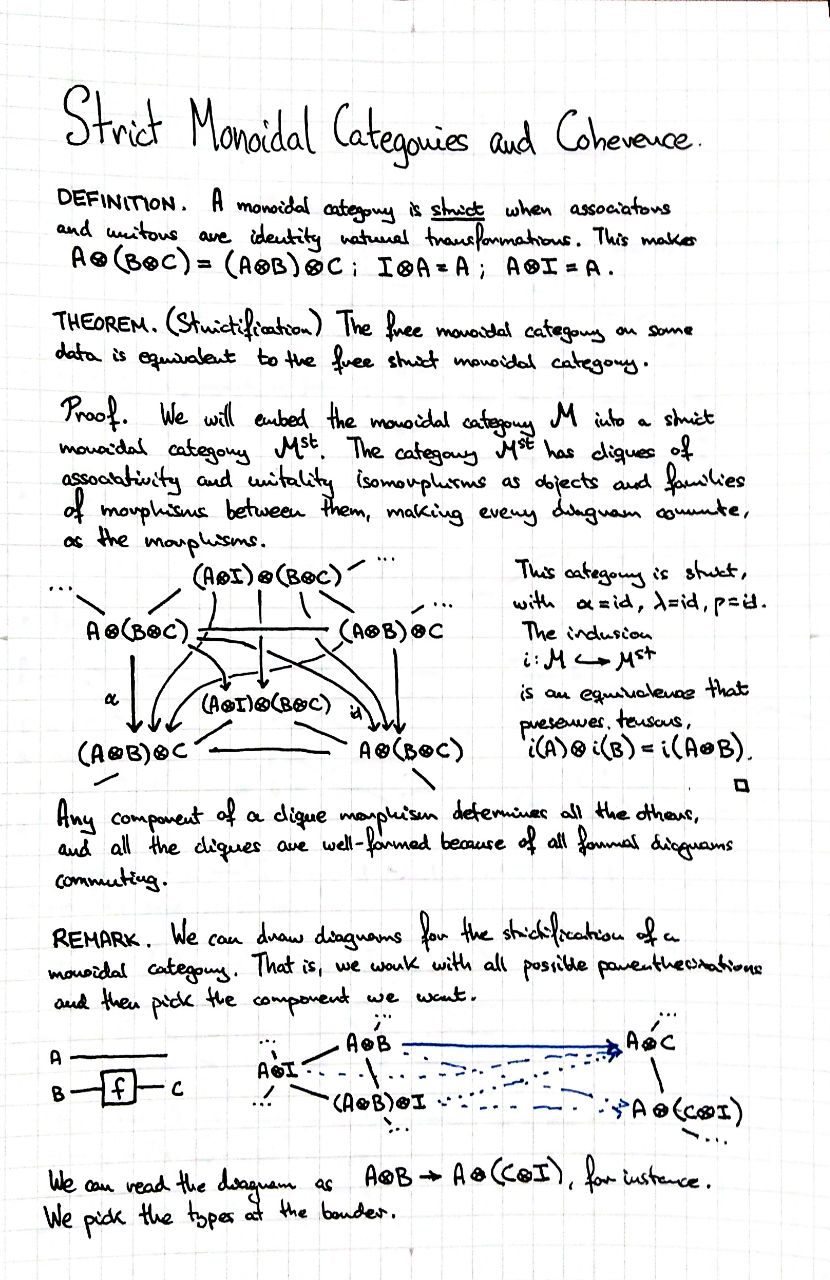 Strict Monoidal Categories and Coherence.
DEFINITION. A monoidal category is strict when associators
and unitors are identity natural transformations. This makes
A⊗(B⊗C) = (A⊗B)⊗C ; I⊗A = A ; A⊗I = A.
THEOREM. (Strictification) The free monoidal category on some
data is equivalent to the free strict monoidal category.
Proof. We will embed the monoidal category M into a strict
monoidal category Mˢᵗ. The category Mˢᵗ has cliques of
associativity and unitality isomorphisms as objects and families
of morphisms between them, making every diagram commute,
as the morphisms.
... (A⊗I)⊗(B⊗C) ...
A⊗(B⊗C) (A⊗B)⊗C ...
α (A⊗I)⊗(B⊗C) id
(A⊗B)⊗C A⊗(B⊗C)
This category is strict,
with α=id, λ=id, ρ=id.
The inclusion
i: M ↪ Mˢᵗ
is an equivalence that
preserves tensors,
i(A)⊗i(B) = i(A⊗B).
□
Any component of a clique morphism determines all the others,
and all the cliques are well-formed because of all formal diagrams
commuting.
REMARK. We can draw diagrams for the strictification of a
monoidal category. That is, we work with all possible parenthesizations
and then pick the component we want.
A
B f C
... A⊗B ... A⊗C ...
A⊗I
... (A⊗B)⊗I ... A⊗(C⊗I) ...
We can read the diagram as A⊗B → A⊗(C⊗I), for instance.
We pick the types at the border.